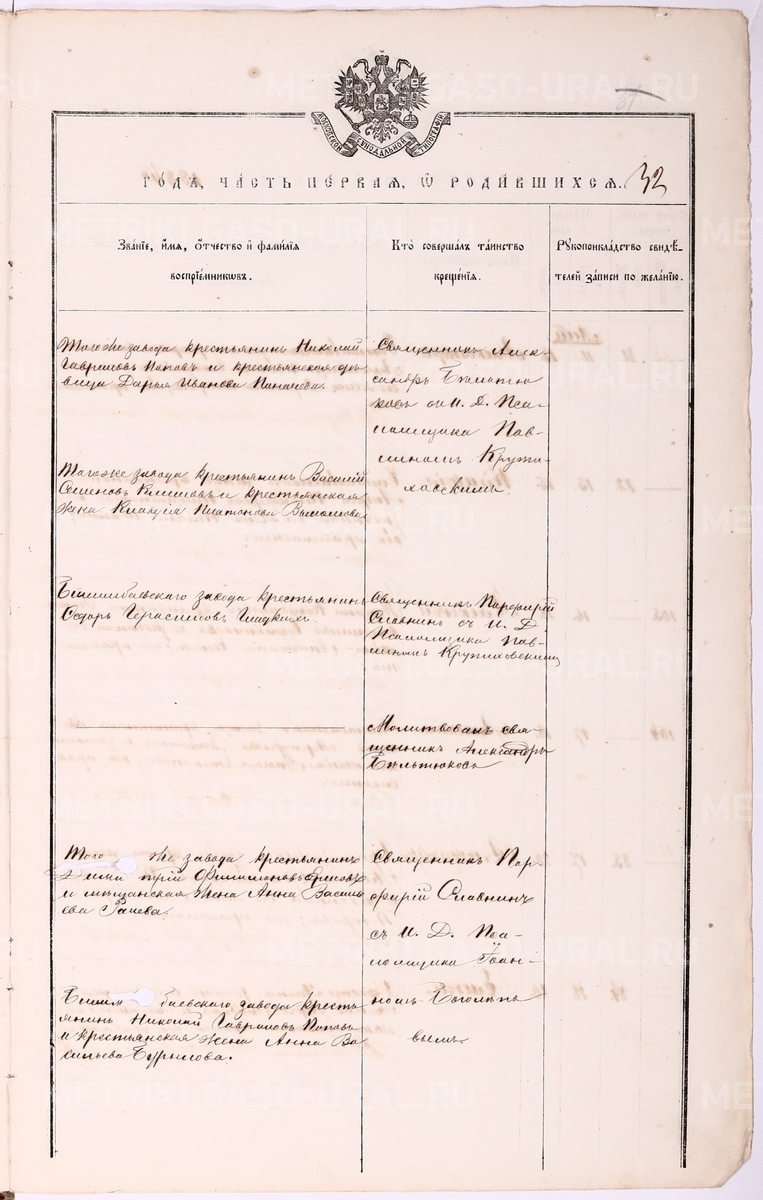 МОСКОВСКОЙ СѴНОДАЛЬНОЙ ТИПОГРАФІИ
32
ГО́ДЪ, ЧА́СТЬ ПЕ́РВАЯ, Ѡ҆ РОДИ́ВШИХСЯ.
Зва́нїе, и҆́мя, ѻ҆́тчество и҆ фами́лїя
воспрїе́мникѡвъ.
Кто̀ соверша́лъ та́инство
креще́нїя.
Рꙋкоприкла́дство свидѣ́-
телей за́писи по жела́нїю.
Того же завода крестьянинъ Николай
Гавриловъ Поповъ и крестьянская дѣ
вица Дарья Иванова Пиначева.
Священникъ Алек-
сандръ Бѣльтю
ковъ съ И. Д. Пса-
ломщика Пав-
линомъ Крути-
ховскимъ.
Того же завода крестьянинъ Василій
Семеновъ Климовъ и крестьянская
жена Клавдія Платонова
Билимбаевскаго завода крестьянинъ
Ѳедоръ Герасимовъ Гладкихъ.
Священникъ Парфирій
Славнинъ съ И. Д
Псаломщика Пав-
линомъ Крутиховскимъ
Молитвовалъ свя-
щенникъ Александръ
Бѣльтюковъ
Того же завода крестьянинъ
Димитрій Филимоновъ
и мѣщанская жена Анна Василь
ева
Священникъ Пор-
фирій Славнинъ
съ И. Д. Пса-
ломщика Іоан-
номъ Боголѣпо
вымъ
Билимбаевскаго завода кресть
янинъ Николай Гавриловъ Поповъ
и крестьянская жена Анна Ва
сильева Бурылова.
METRIKI.GASO-URAL.RU